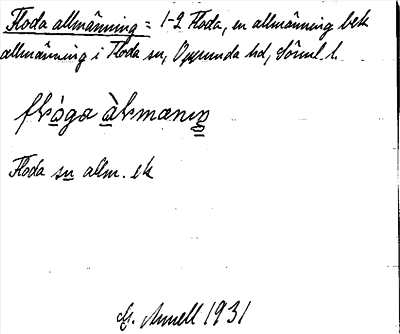 Floda allmänning = 1-2 Floda, en allmänning bek
allmänning i Floda sn, Oppunda hd, Söml. l.
Floda sn allm. ek
G. Annell 1931